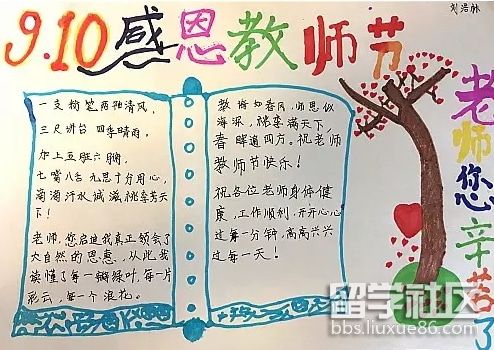 刘浩林
9.10感恩教师节
一支粉笔两袖清风,
三尺讲台 四季晴雨,
加上五脏六腑,
七嘴八舌 九思十分用心,
滴滴汗水 诚滋桃李芳天
下!
老师,您启迪我真正领会了
大自然的恩惠,从此我
读懂了每一瓣绿叶,每一片
彩云,每一个浪花。
教诲如春风,师恩似
海深,桃李满天下,
春晖遍四方。祝老师
教师节快乐!
祝各位老师身体健
康,工作顺利,开开心心
过每一分钟,高高兴兴
过每一天!
老师您辛苦了
留学社区
bbs.liuxue86.com